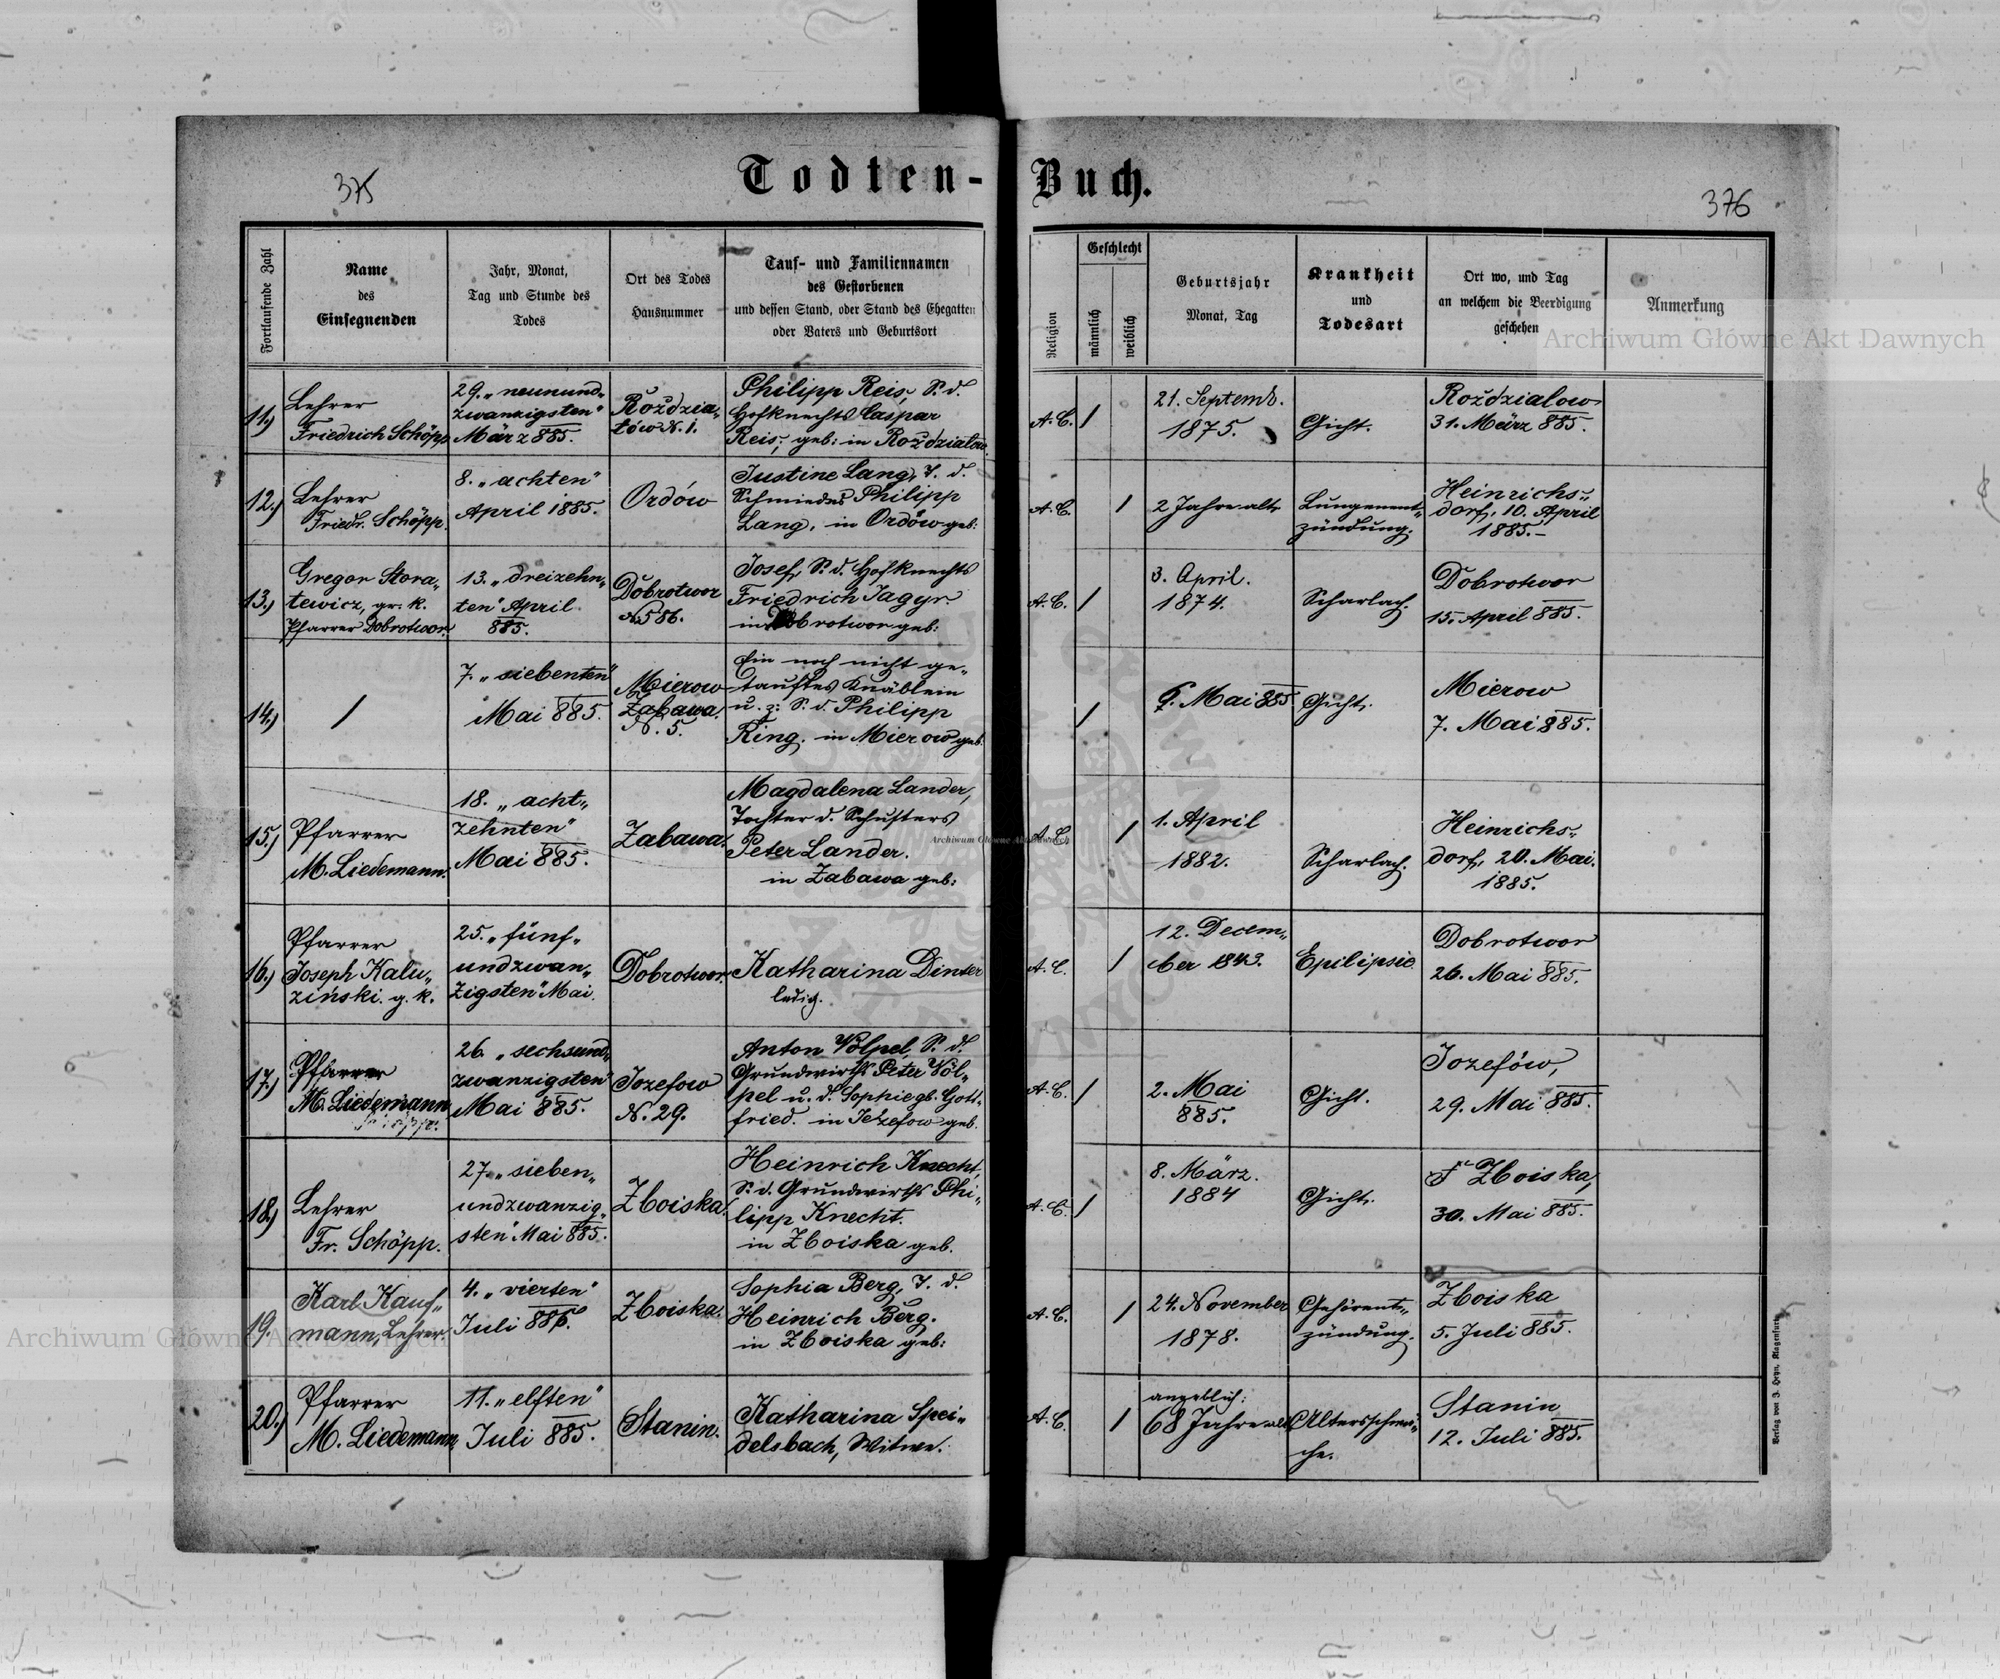 375
Todten-Buch.
376
Fortlaufende Zahl
Name
des
Einsegnenden
Jahr, Monat,
Tag und Stunde des
Todes
Ort des Todes
Hausnummer
Tauf- und Familiennamen
des Gestorbenen
und dessen Stand, oder Stand des Ehegatten
oder Vaters und Geburtsort
Religion
Geschlecht
männlich
weiblich
Geburtsjahr
Monat, Tag
Krankheit
und
Todesart
Ort wo, und Tag
an welchem die Beerdigung
geschehen
Anmerkung
11.)
Lehrer
Friedrich Schöpp
29. „neunund-
zwanzigsten“
März 885.
Roždzia-
łów N. 1.
Philipp Reis, S. d.
Hofknechts Caspar
Reis, geb: in Roždzialow.
A. C.
/
21. Septemb.
1875.
Gicht.
Roždzialow
31. März 885.
12.)
Lehrer
Friedr. Schöpp.
8. „achten“
April 1885.
Ordów
Justine Lang, T. d.
Schmiedes Philipp
Lang, in Ordów geb:
A. C.
/
2 Jahre alt.
Lungenent-
zündung.
Heinrichs-
dorf, 10. April
1885.-
13.)
Gregor Stora-
tewicz, gr. k.
Pfarrer Dobrotwor.
13. „dreizehn-
ten“ April.
885.
Dobrotwor
N. 586.
Josef, S. d. Hofknechts
Friedrich Jagyr.
in Dobrotwor geb:
A. C.
/
3. April.
1874.
Scharlach.
Dobrotwor
15. April 885.
14.)
/
7. „siebenten“
Mai 885.
Mierow
Zabawa.
N. 5.
Ein noch nicht ge-
tauftes Knäblein
u. z: S. d. Philipp
Ring. in Mierow geb.
/
6. Mai 885
Gicht.
Mierow
7. Mai 885.
15.)
Pfarrer
M. Liedemann.
18. „acht-
zehnten“
Mai 885.
Zabawa.
Magdalena Lander,
Tochter d. Schusters
Peter Lander.
in Zabawa geb:
A. C.
/
1. April
1882.
Scharlach.
Heinrichs-
dorf, 20. Mai.
1885.
16.)
Pfarrer
Joseph Kalu-
ziński. g. k.
25. „fünf-
undzwan-
zigsten“ Mai.
Dobrotwor.
Katharina Dinter
ledig.
A. C.
/
12. Decem-
ber 1843.
Epilipsie
Dobrotwor
26. Mai 885.
17.)
Pfarrer
M. Liedemann
26. „sechsund-
zwanzigsten“
Mai 885.
Jozefow
N. 29.
Anton Völpel, S. d.
Grundwirths Peter Völ-
pel u. d. Sophie gb. Gott-
fried. in Jozefow geb.
A. C.
/
2. Mai
885.
Gicht.
Jozefów,
29. Mai 885.
18.)
Lehrer
Fr. Schöpp.
27. „sieben-
undzwanzig-
sten“ Mai 885.
Zboiska.
Heinrich Knecht,
S. d. Grundwirths Phi-
lipp Knecht.
in Zboiska geb.
A. C.
/
8. März.
1884
Gicht.
Zboiska,
30. Mai 885.
19.
Karl Kauf-
mann, Lehrer.
4. „vierten“
Juli 885.
Zboiska.
Sophia Berg, T. d.
Heinrich Berg.
in Zboiska geb:
A. C.
/
24. November
1878.
Gehörent-
zündung.
Zboiska
5. Juli 885.
20.)
Pfarrer
M. Liedemann
11. „elften“
Juli 885.
Stanin.
Katharina Spei-
delsbach, Witwe.
A. C.
/
angeblich:
68 Jahre alt
Altersschwä-
che.
Stanin
12. Juli 885.
Verlag von J. Heyn, Klagenfurt.
Archiwum Główne Akt Dawnych
Archiwum Główne Akt Dawnych
Archiwum Główne Akt Dawnych